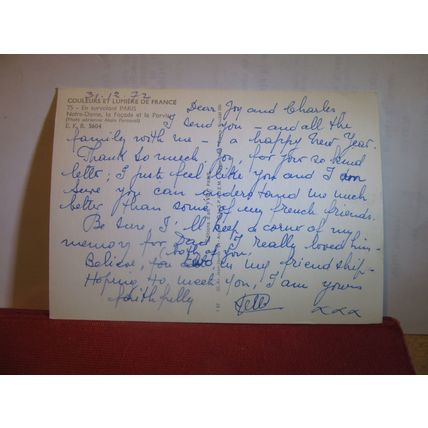 31.12.72
COULEURS ET LUMIÈRE DE FRANCE
75 - En survolant PARIS
Notre-Dame, la Façade et le Parvis
(Photo aérienne Alain Perceval)
E. K. B. 5604
Dear Joy and Charles
I send you - and all the
family with me - a happy New Year.
Thank so much, Joy, for your so kind
letter; I just feel like you and I am
sure you can understand me much
better than some of my french friends.
Be sure I'll keep a corner of my
memory for Dad. I really loved him -
Believe, both of you, in my friendship -
Hoping to meet you, I am yours
faithfully
xxx